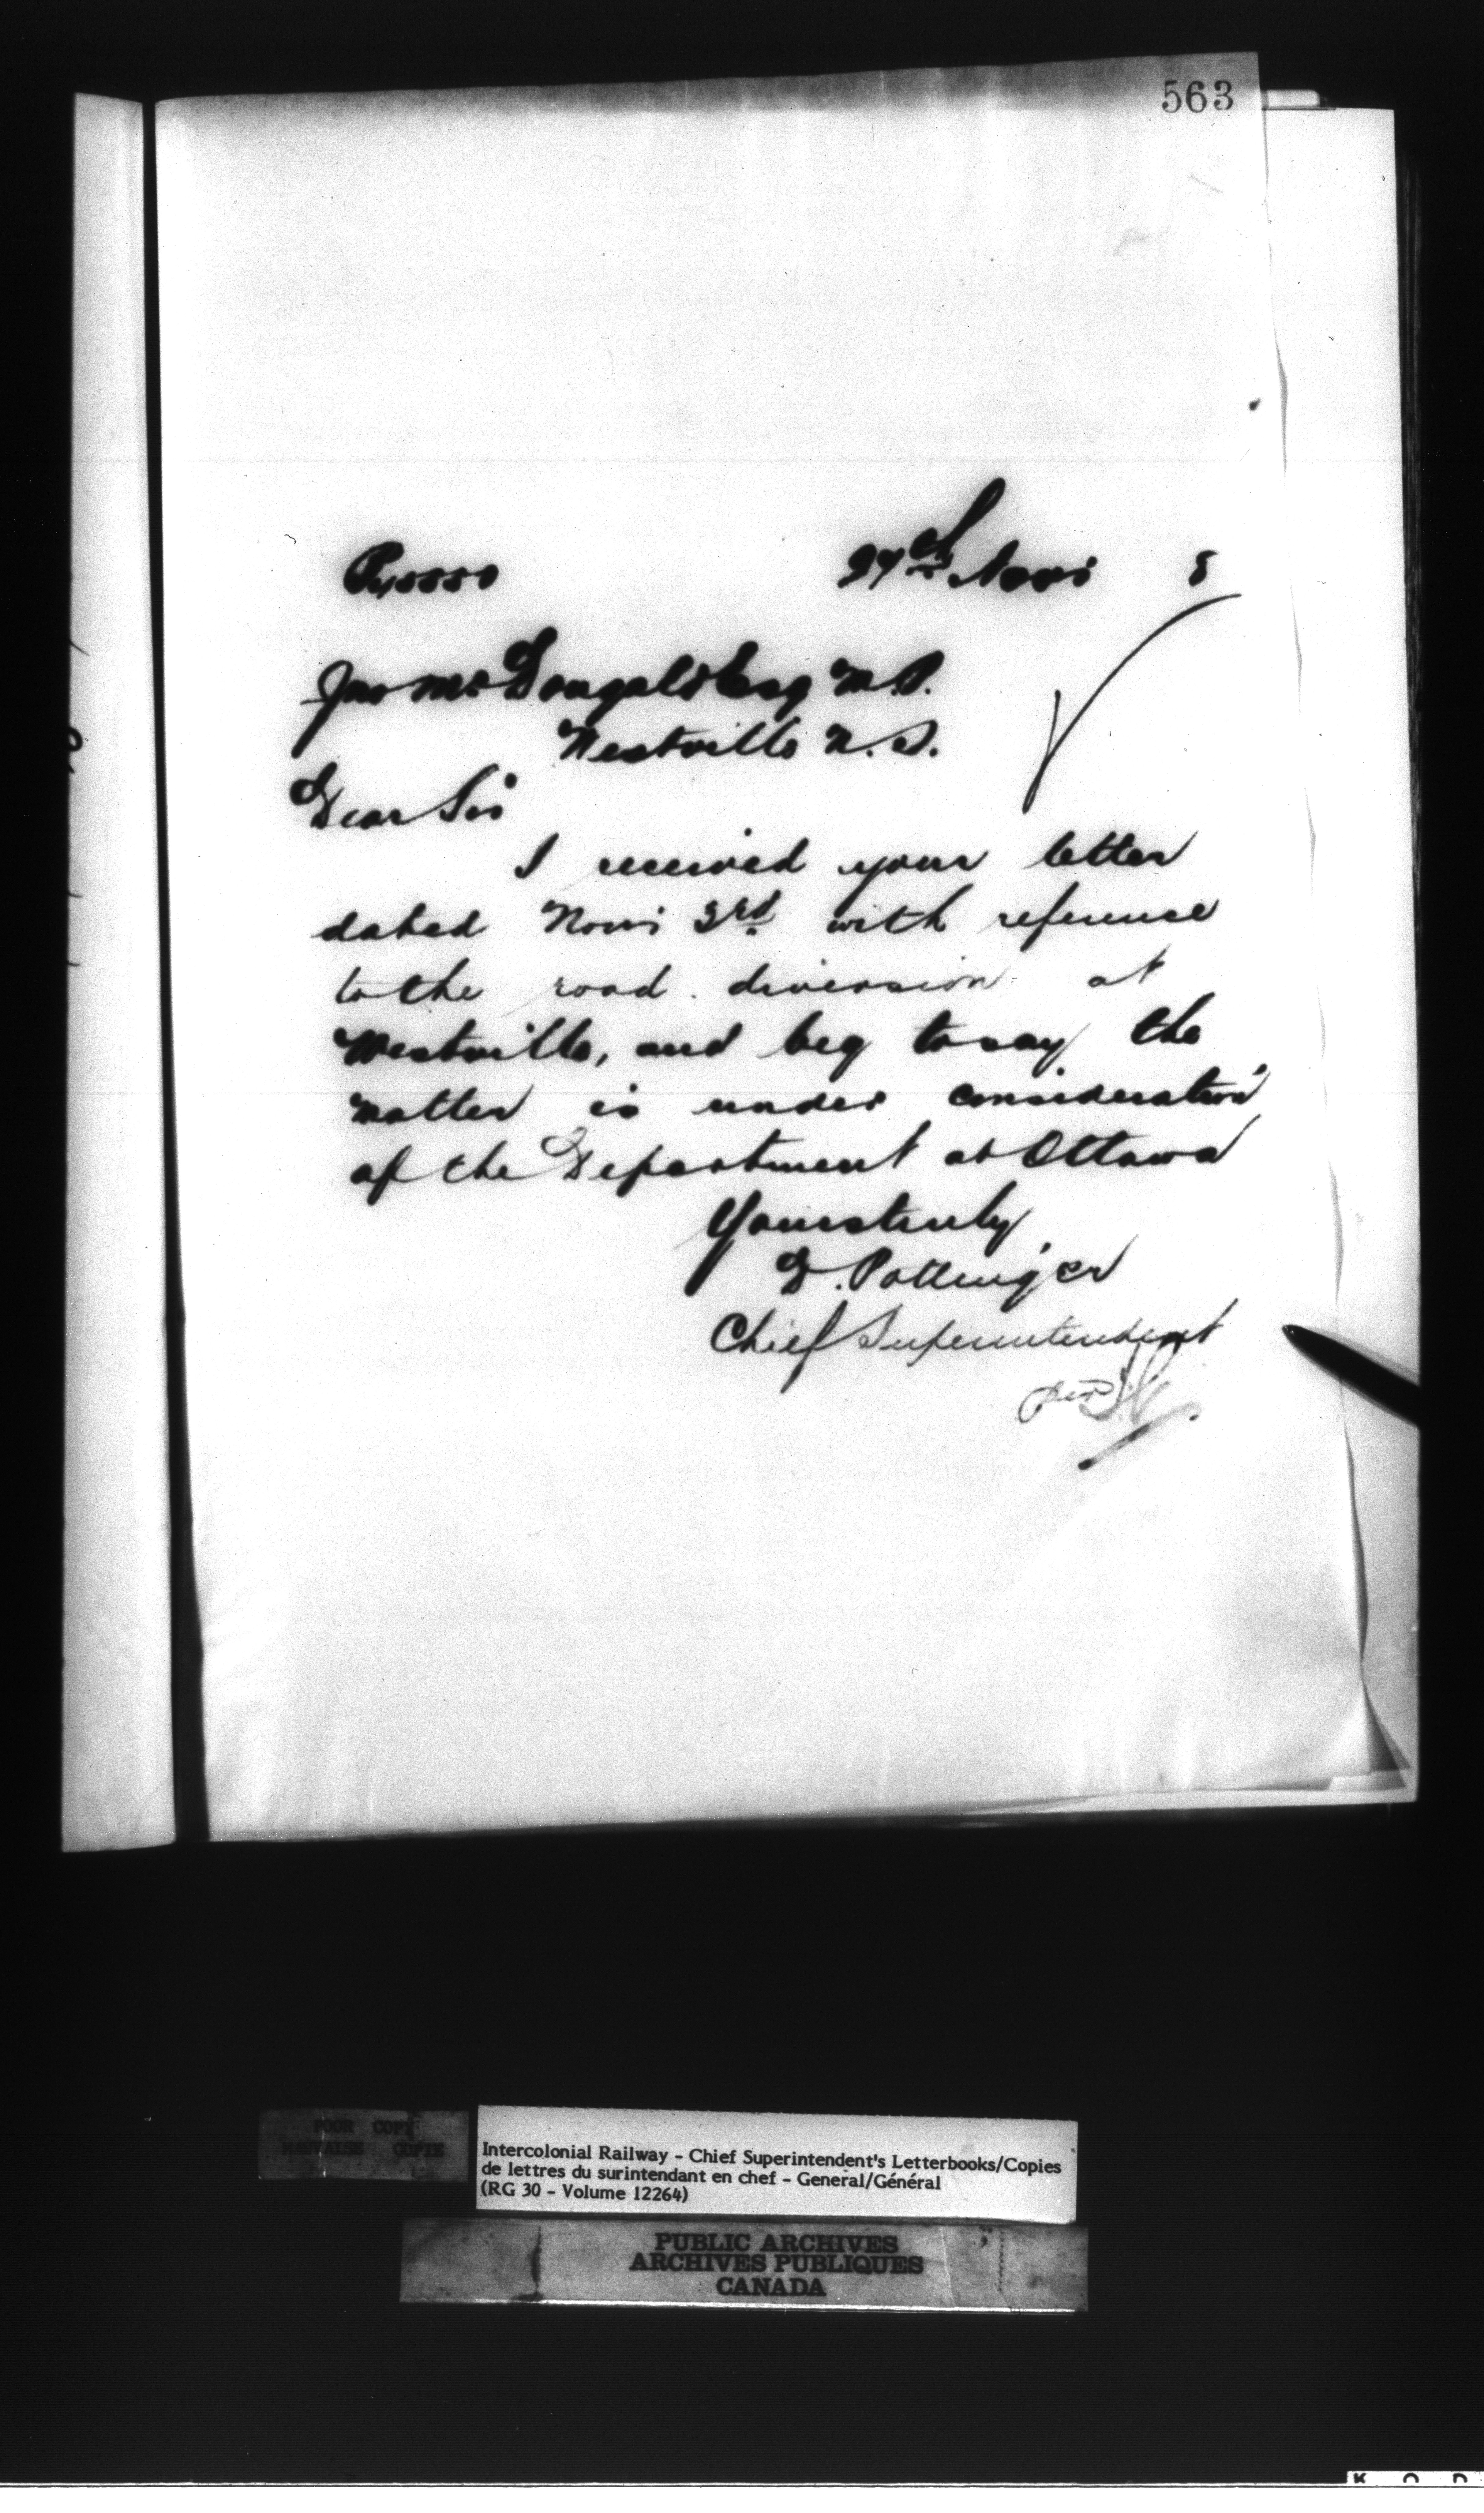 563
27th Novr 8
Jno McDougald Esq M.P.
Westville N.S.
Dear Sir
I received your letter
dated Novr 3rd with reference
to the road diversion at
Westville, and beg to say the
matter is under consideration
of the Department at Ottawa
Yours truly
D. Pottinger
Chief Superintendent
per
POOR COPY
MAUVAISE COPIE
Intercolonial Railway - Chief Superintendent's Letterbooks/Copies
de lettres du surintendant en chef - General/Général
(RG 30 - Volume 12264)
PUBLIC ARCHIVES
ARCHIVES PUBLIQUES
CANADA
K O D